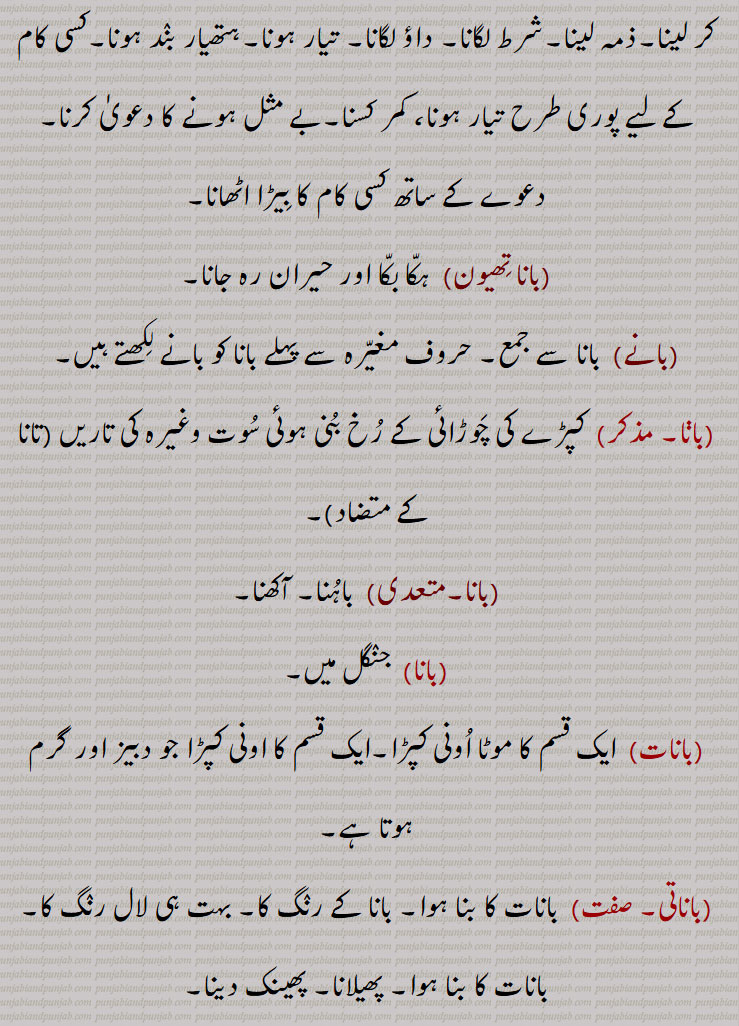 کر لینا۔ذمہ لینا۔شرط لگانا۔ داؤ لگانا۔ تیار ہونا۔ہتھیار بنْد ہونا۔کسی کام
کے لیے پوری طرح تیار ہونا، کمر کسنا۔بے مثل ہونے کا دعویٰ کرنا۔
دعوے کے ساتھ کسی کام کا بِیڑا اٹھانا۔
(باناتِھیون) ہکّا بکّا اور حیران رہ جانا۔
(بانے) بانا سے جمع۔ حروف مغیّرہ سے پہلے بانا کو بانے لِکھتے ہیں۔
(بانْا۔ مذکر) کپڑے کی چَوڑائی کے رُخ بُنی ہوئی سُوت وغیرہ کی تاریں (تانا
کے متضاد)۔
(بانا۔متعدی) باہُنا۔ آکھنا۔
(بانا) جنْگل میں۔
(بانات) ایک قسم کا موٹا اُونی کپڑا۔ایک قسم کا اونی کپڑا جو دبیز اور گرم
ہوتا ہے۔
(باناتی۔ صفت) بانات کا بنا ہوا۔ بانا کے رنْگ کا۔ بہت ہی لال رنْگ کا۔
بانات کا بنا ہوا۔ پھیلانا۔ پھینک دینا۔